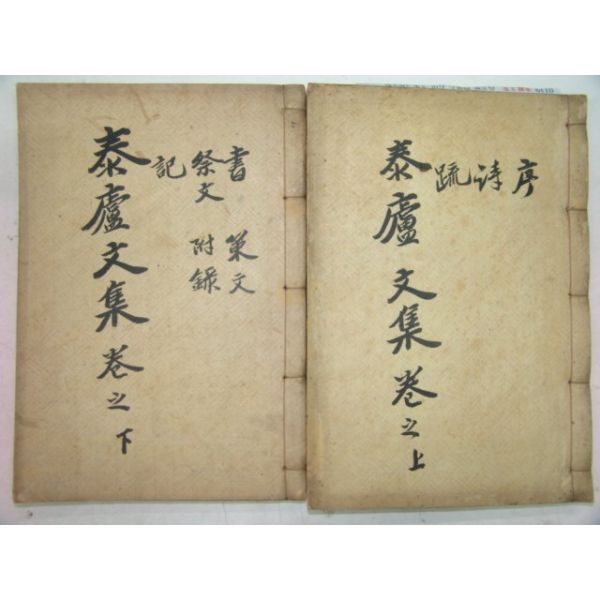 序
詩
疏
泰廬文集卷之上
書 策文
祭文 附錄
記
泰廬文集卷之下